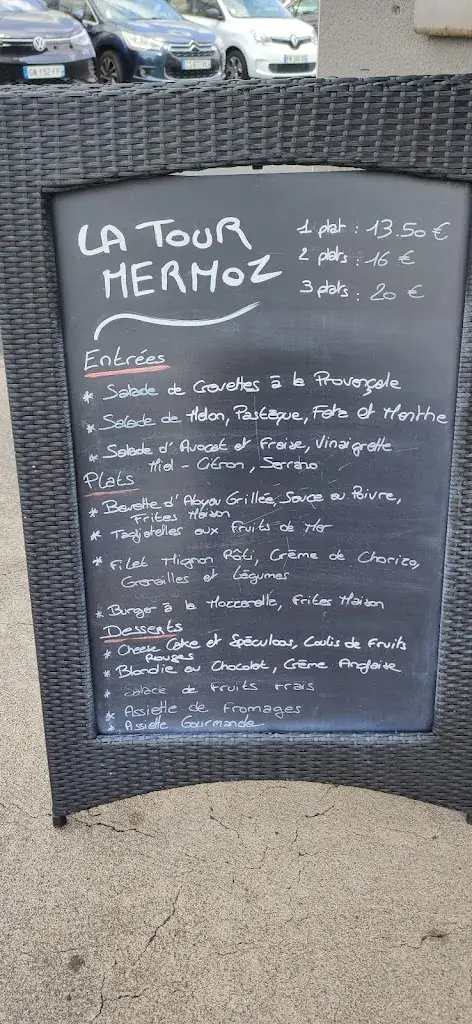 LA TOUR
MERMOZ
1 plat : 13.50 €
2 plats : 16 €
3 plats : 20 €
Entrées
* Salade de Crevettes à la Provençale
* Salade de Melon, Pastèque, Feta et Menthe
* Salade d'Avocat et Fraise, Vinaigrette
Miel - Citron, Serrano
Plats
* Bavette d'Aloyau Grillée, Sauce au Poivre,
Frites Maison
* Tagliatelles aux Fruits de Mer
* Filet Mignon Rôti, Crème de Chorizo,
Grenailles et Légumes
* Burger à la Mozzarella, Frites Maison
Desserts
* Cheese Cake et Spéculoos, Coulis de Fruits
Rouges
* Blondie au Chocolat, Crème Anglaise
* Salade de Fruits Frais
* Assiette de Fromages
* Assiette Gourmande